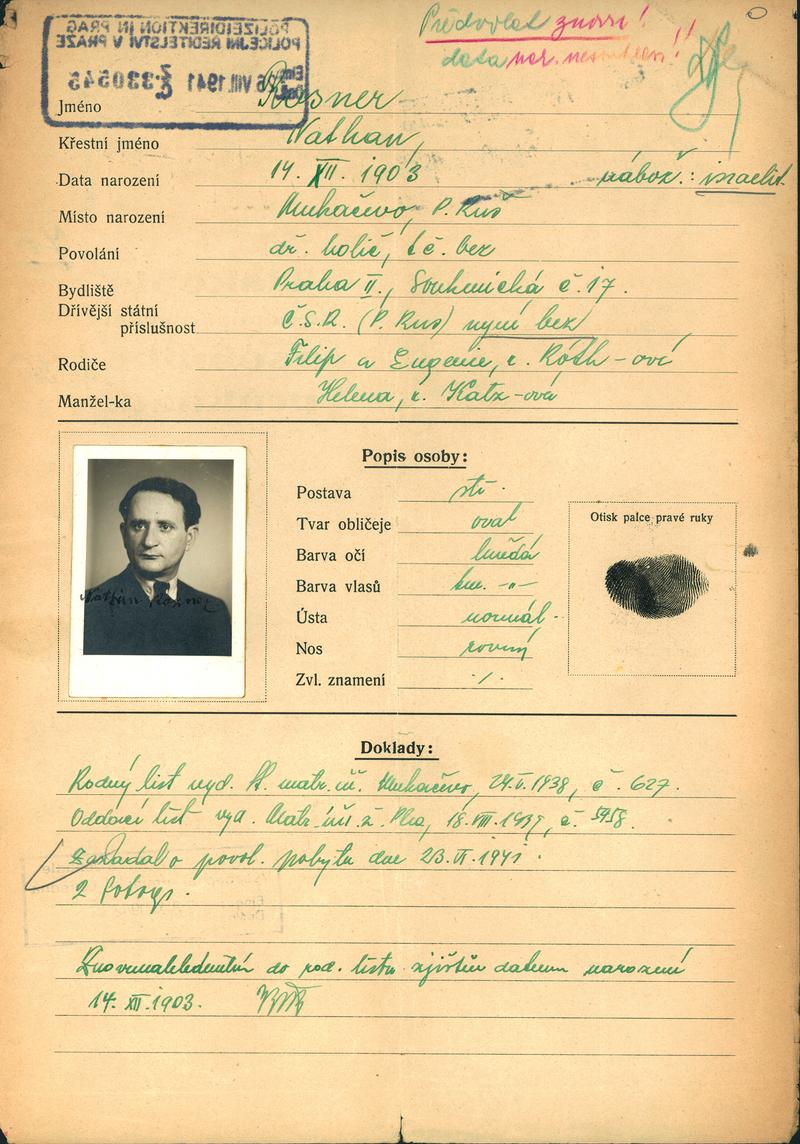 POLIZEIDIREKTION IN PRAG
POLICEJNÍ ŘEDITELSTVÍ V PRAZE
VIII. 1941 Č. 330545
Předvolat znovu!
data nar. nesouhlasí!!
Jméno Rosner
Křestní jméno Nathan,
Data narození 14. XII. 1903 nábož.: israelit.
Místo narození Mukačevo, P. Rus
Povolání holič, t č. bez
Bydliště Praha II., č. 17.
Dřívější státní
příslušnost Č.S.R. (P. Rus) nyní bez
Rodiče Filip a Eugenie, r. Róth-ová
Manžel-ka Helena, r. Katz-ová
Popis osoby:
Postava stř.
Tvar obličeje oval
Barva očí hnědá
Barva vlasů tm. -„-
Ústa normál.
Nos rovný
Zvl. znamení ./.
Otisk palce pravé ruky
Nathan Rosner
Doklady:
Rodný list vyd. St. matr. úř. Mukačevo, 24.V.1938, č. 627.
Oddací list vyd. Matr. úř. Pha, 18.VIII.1937, č. 5958.
Zažádal o povol. pobytu dne 23.VI.1941.
2 fotogr.
do rod. listu zjištěn datum narození
14. XII. 1903.